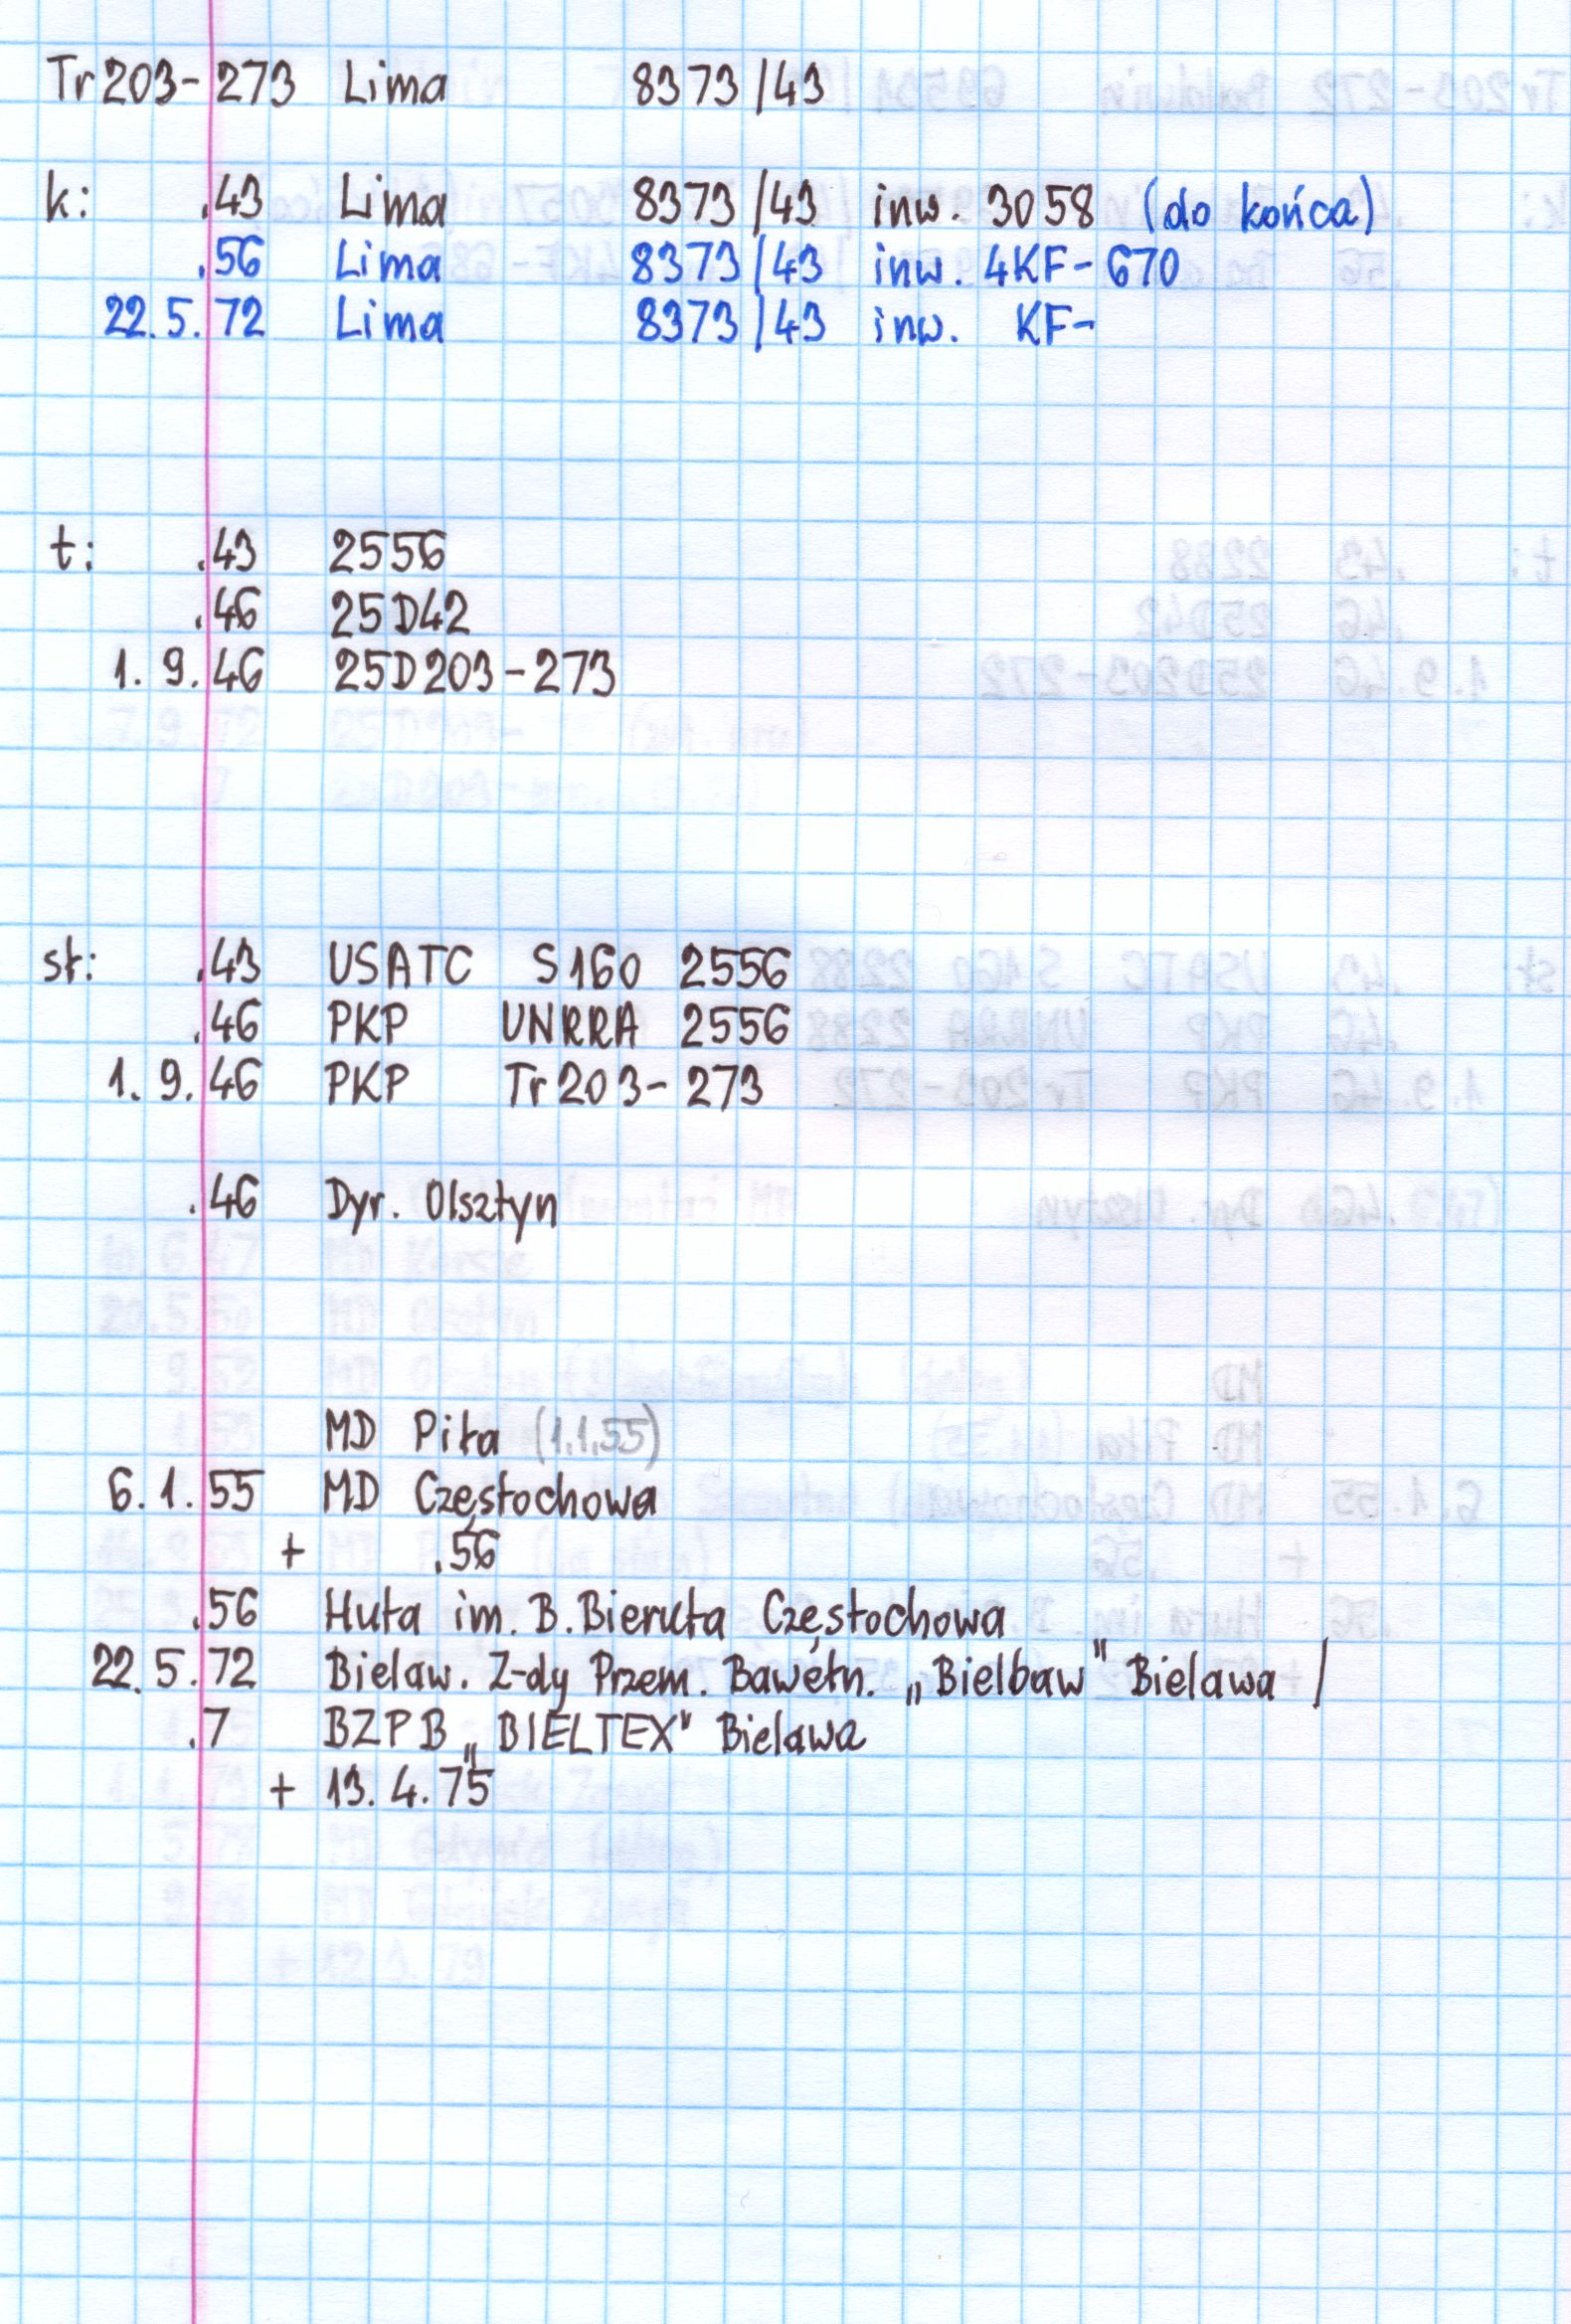 Tr203-273 Lima 8373/43
k: .43 Lima 8373/43 inw. 3058 (do końca)
.56 Lima 8373/43 inw. 4KF-670
22.5.72 Lima 8373/43 inw. KF-
t: .43 2556
.46 25D42
1.9.46 25D203-273
st: .43 USATC S160 2556
.46 PKP UNRRA 2556
1.9.46 PKP Tr203-273
.46 Dyr. Olsztyn
MD Piła (1.1.55)
6.1.55 MD Częstochowa
+ .56
.56 Huta im. B.Bieruta Częstochowa
22.5.72 Bielaw. Z-dy Przem. Bawełn. „Bielbaw" Bielawa /
.7 BZPB „BIELTEX" Bielawa
+ 13.4.75